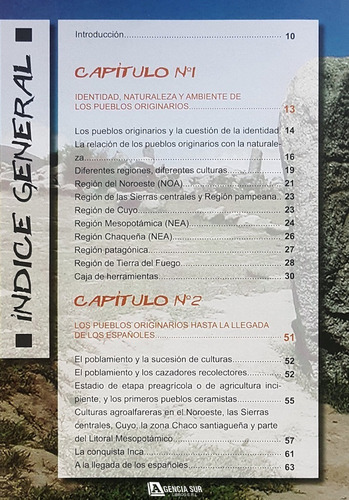 ÍNDICE GENERAL
Introducción 10
CAPÍTULO Nº1
IDENTIDAD, NATURALEZA Y AMBIENTE DE
LOS PUEBLOS ORIGINARIOS 13
Los pueblos originarios y la cuestión de la identidad 14
La relación de los pueblos originarios con la naturale-
za 16
Diferentes regiones, diferentes culturas 19
Región del Noroeste (NOA) 21
Región de las Sierras centrales y Región pampeana 23
Región de Cuyo 23
Región Mesopotámica (NEA) 24
Región Chaqueña (NEA) 26
Región patagónica 27
Región de Tierra del Fuego 28
Caja de herramientas 30
CAPÍTULO Nº2
LOS PUEBLOS ORIGINARIOS HASTA LA LLEGADA
DE LOS ESPAÑOLES 51
El poblamiento y la sucesión de culturas 52
El poblamiento y los cazadores recolectores 52
Estadio de etapa preagrícola o de agricultura inci-
piente, y los primeros pueblos ceramistas 55
Culturas agroalfareras en el Noroeste, las Sierras
centrales, Cuyo, la zona Chaco santiagueña y parte
del Litoral Mesopotámico 57
La conquista Inca 61
A la llegada de los españoles 63
AGENCIA SUR